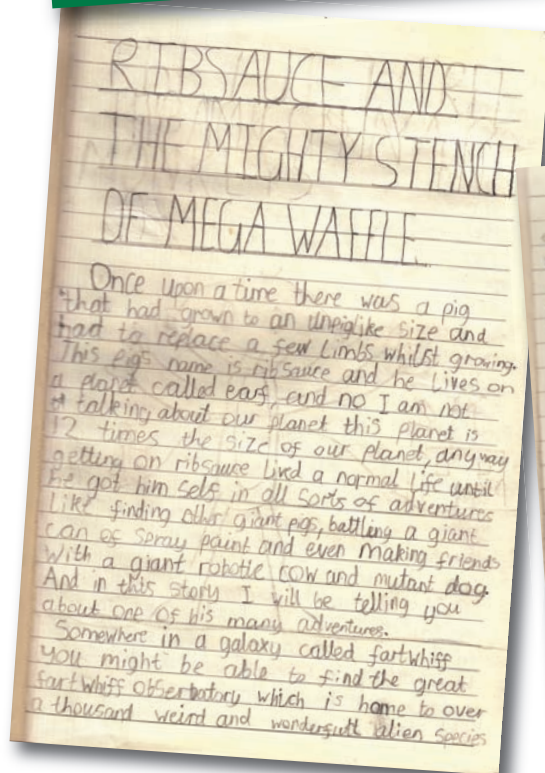 RIBSAUCE AND
THE MIGHTY STENCH
OF MEGA WAFFLE
Once upon a time there was a pig
that had grown to an unpiglike size and
had to replace a few limbs whilst growing.
This pigs name is ribsauce and he lives on
a planet called earf, and no I am not
talking about our planet this planet is
12 times the size of our planet, anyway
getting on ribsauce lived a normal life until
he got him self in all sorts of adventures
like finding other giant pigs, battling a giant
can of spray paint and even making friends
with a giant robotic cow and mutant dog.
And in this story I will be telling you
about one of his many adventures.
Somewhere in a galaxy called fartwhiff
you might be able to find the great
fartwhiff obserbatory which is home to over
a thousand weird and wonderfull alien species